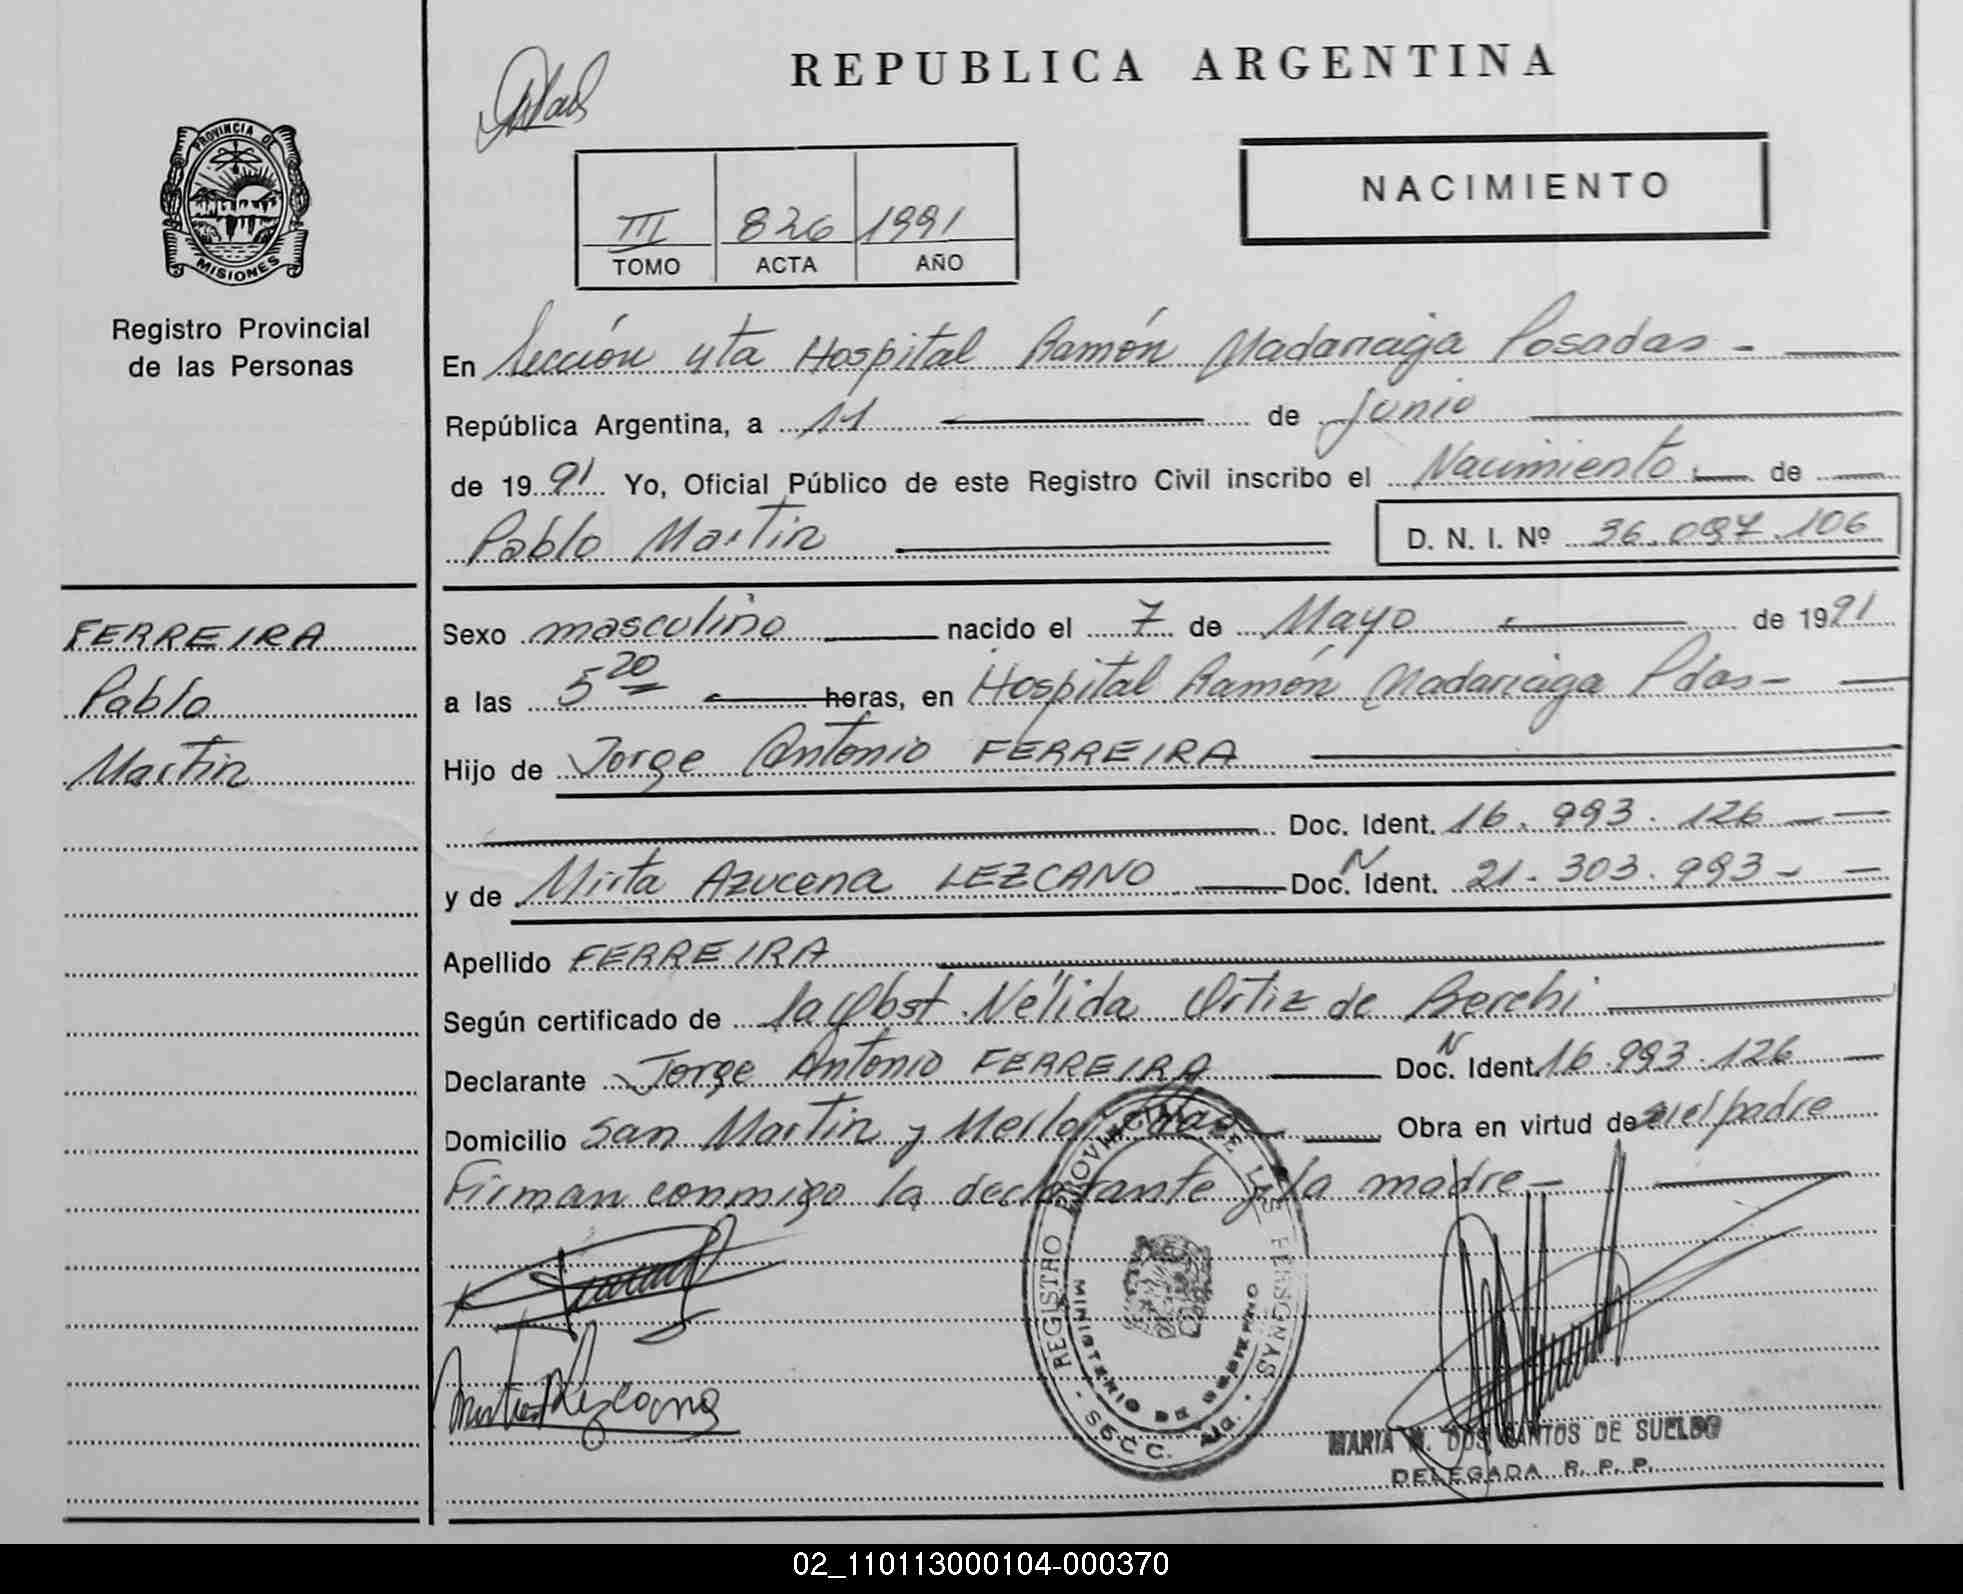 REPUBLICA ARGENTINA
PROVINCIA DE
MISIONES
Registro Provincial
de las Personas
III 826 1991
TOMO ACTA AÑO
NACIMIENTO
En Sección 4ta Hospital Ramón Madariaga Posadas -
República Argentina, a 11 de junio
de 1991 Yo, Oficial Público de este Registro Civil inscribo el Nacimiento de
Pablo Martin D. N. I. Nº 36.097.106
FERREIRA
Pablo
Martin
Sexo masculino nacido el 7 de Mayo de 1991
a las 5 20 horas, en Hospital Ramón Madariaga Pdas-
Hijo de Jorge Antonio FERREIRA
Doc. Ident. 16.993.126
y de Mirta Azucena LEZCANO Doc. N Ident. 21.303.993-
Apellido FERREIRA
Según certificado de la Obst. Nélida Ortiz de Berchi
Declarante Jorge Antonio FERREIRA Doc. N Ident. 16.993.126
Domicilio San Martin y Merlo Obra en virtud de el padre
Firman conmigo la declarante y la madre-
REGISTRO PROVINCIAL DE LAS PERSONAS
MINISTERIO DE GOBIERNO
SECC.
MARIA DOS SANTOS DE SUELDO
DELEGADA R. P. P.
02_110113000104-000370